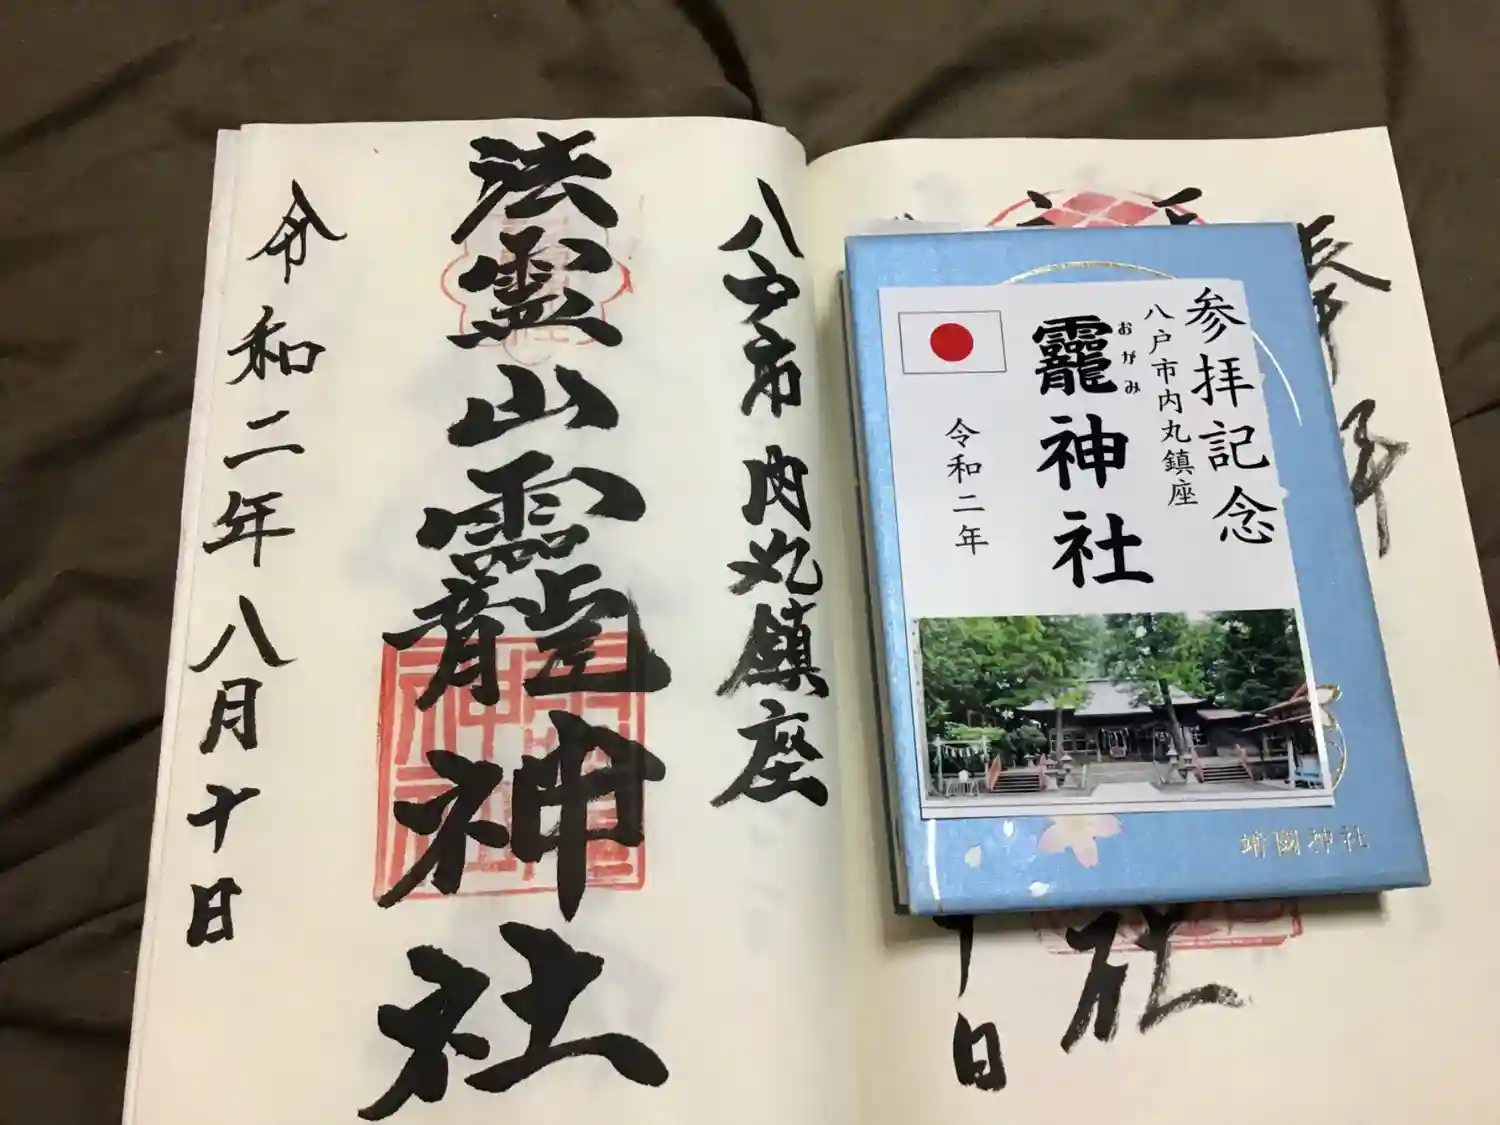 八戸市内丸鎮座
法霊山龗神社
令和二年八月十日
参拝記念
八戸市内丸鎮座
龗神社
おがみ
令和二年
靖國神社
社
日